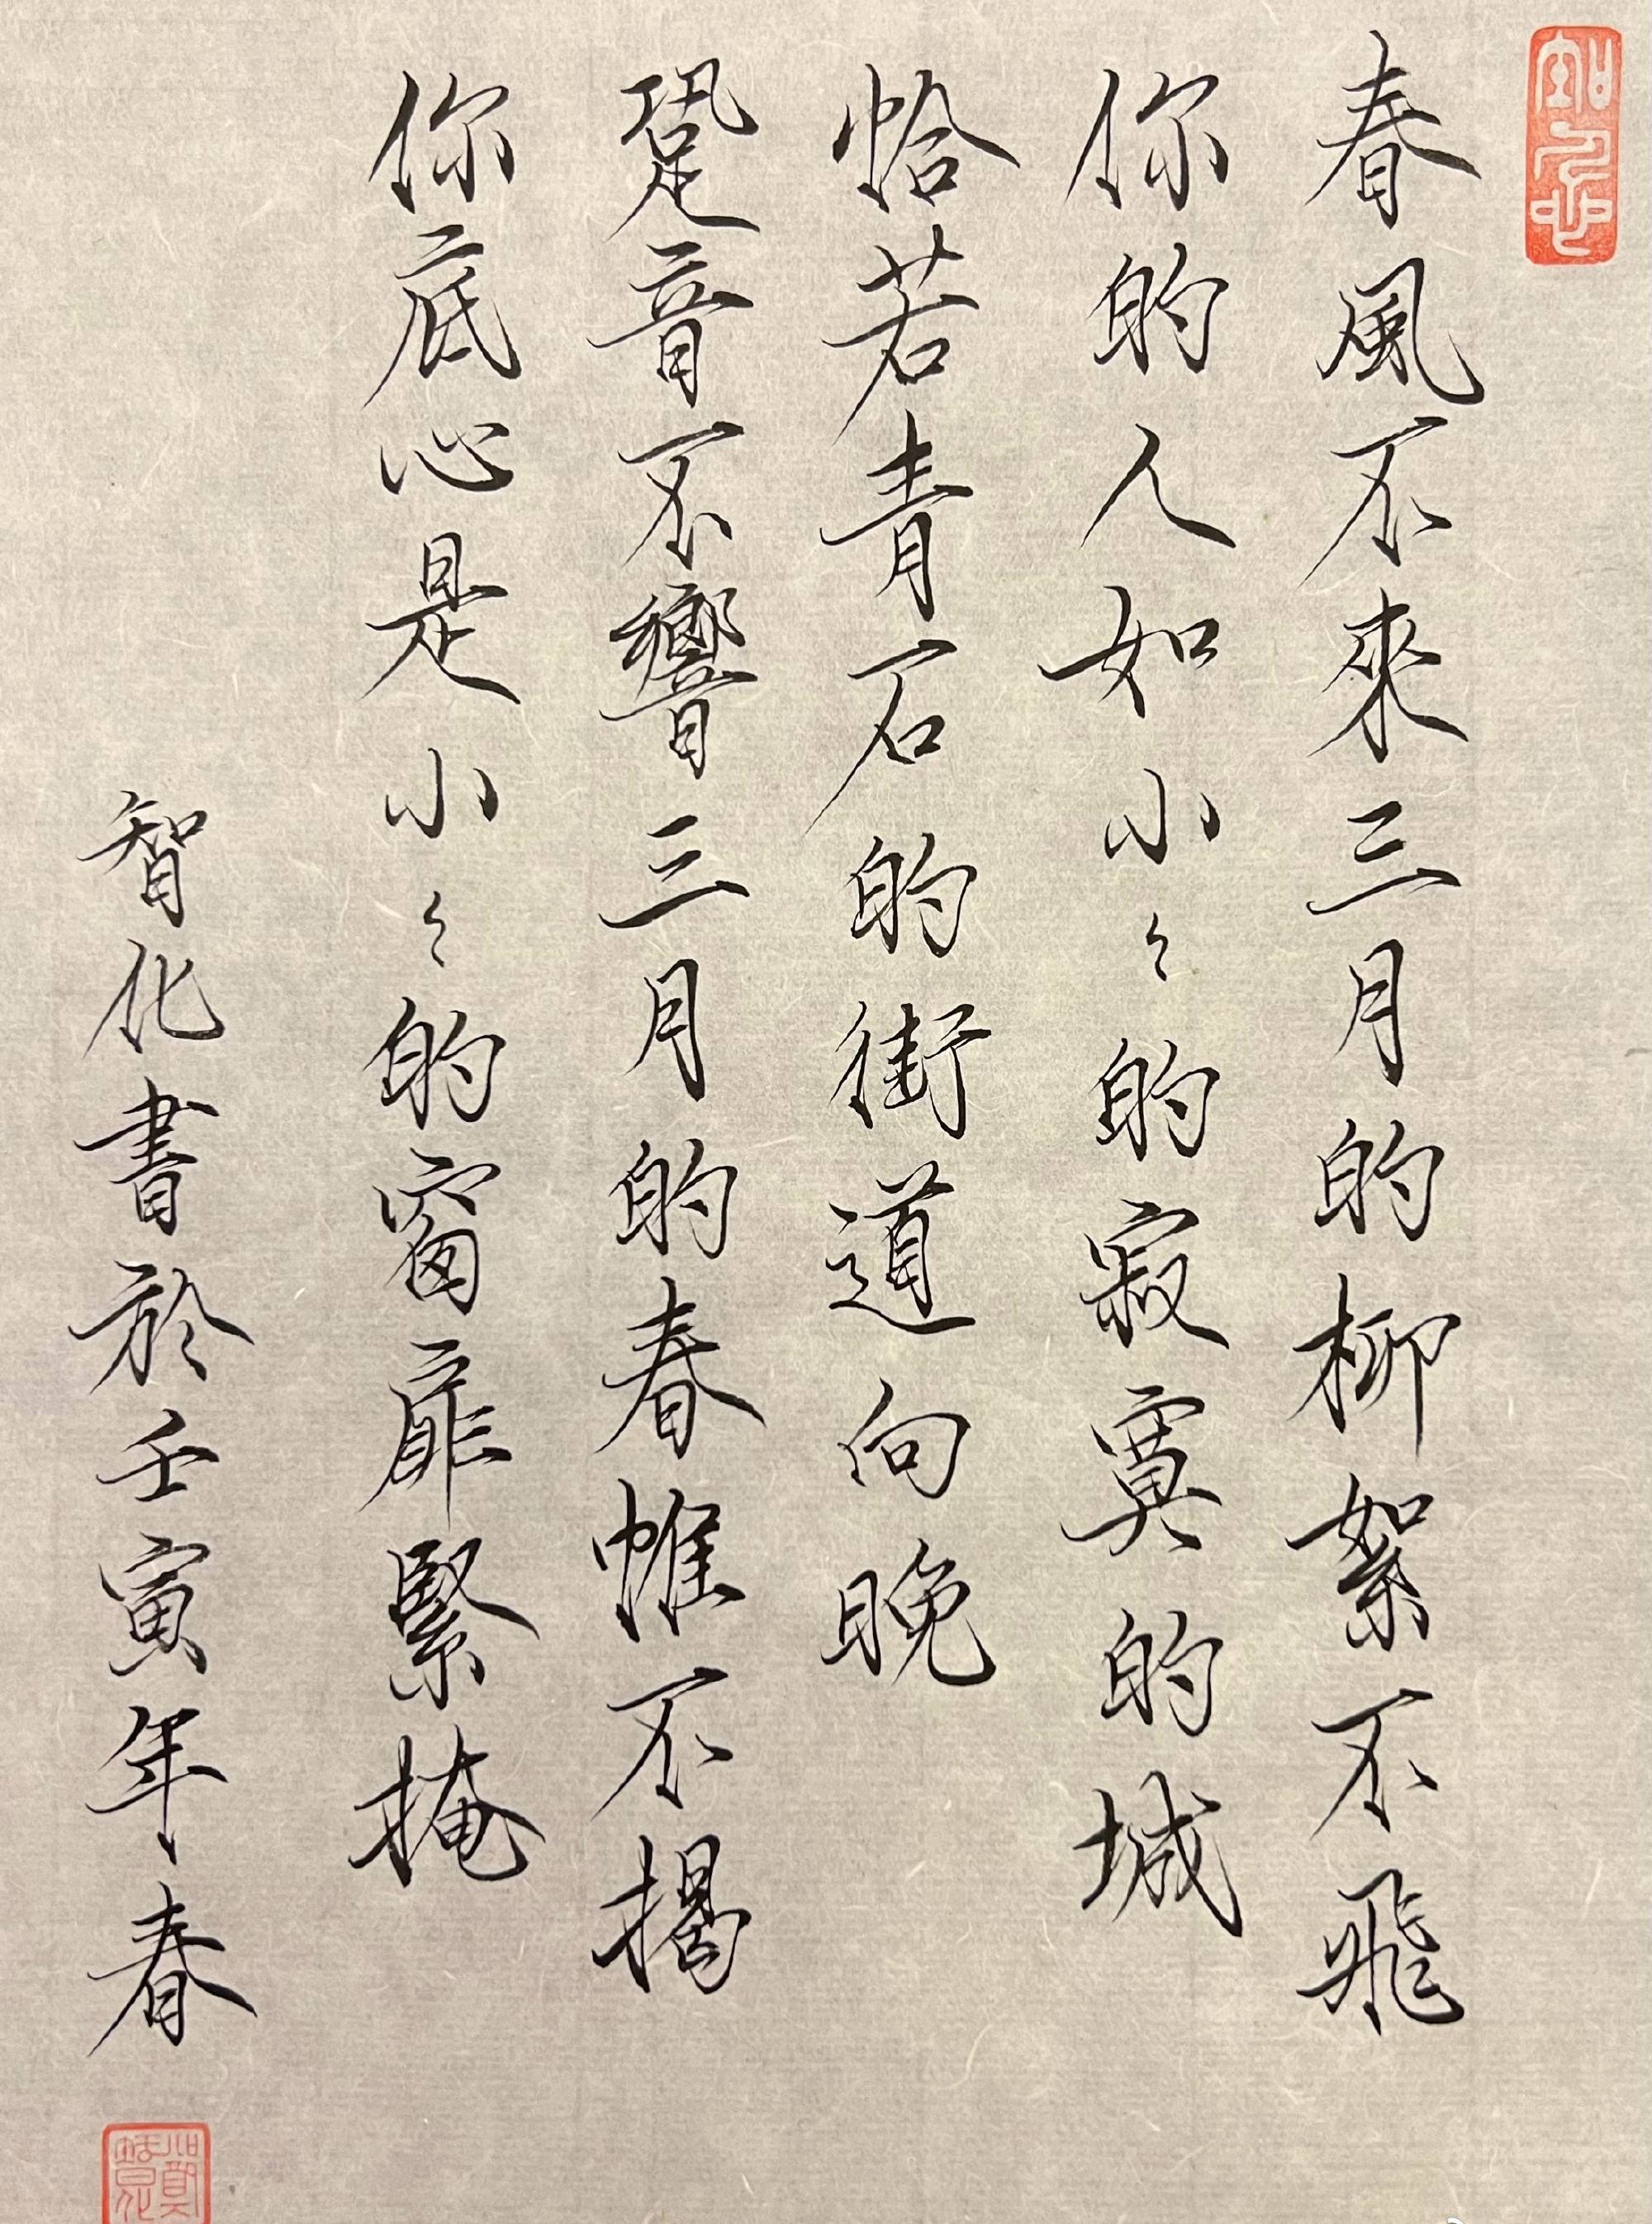 春風不來三月的柳絮不飛
你的人如小々的寂寞的城
恰若青石的街道向晚
跫音不響三月的春帷不揭
你底心是小々的窗扉緊掩
智化書於壬寅年春